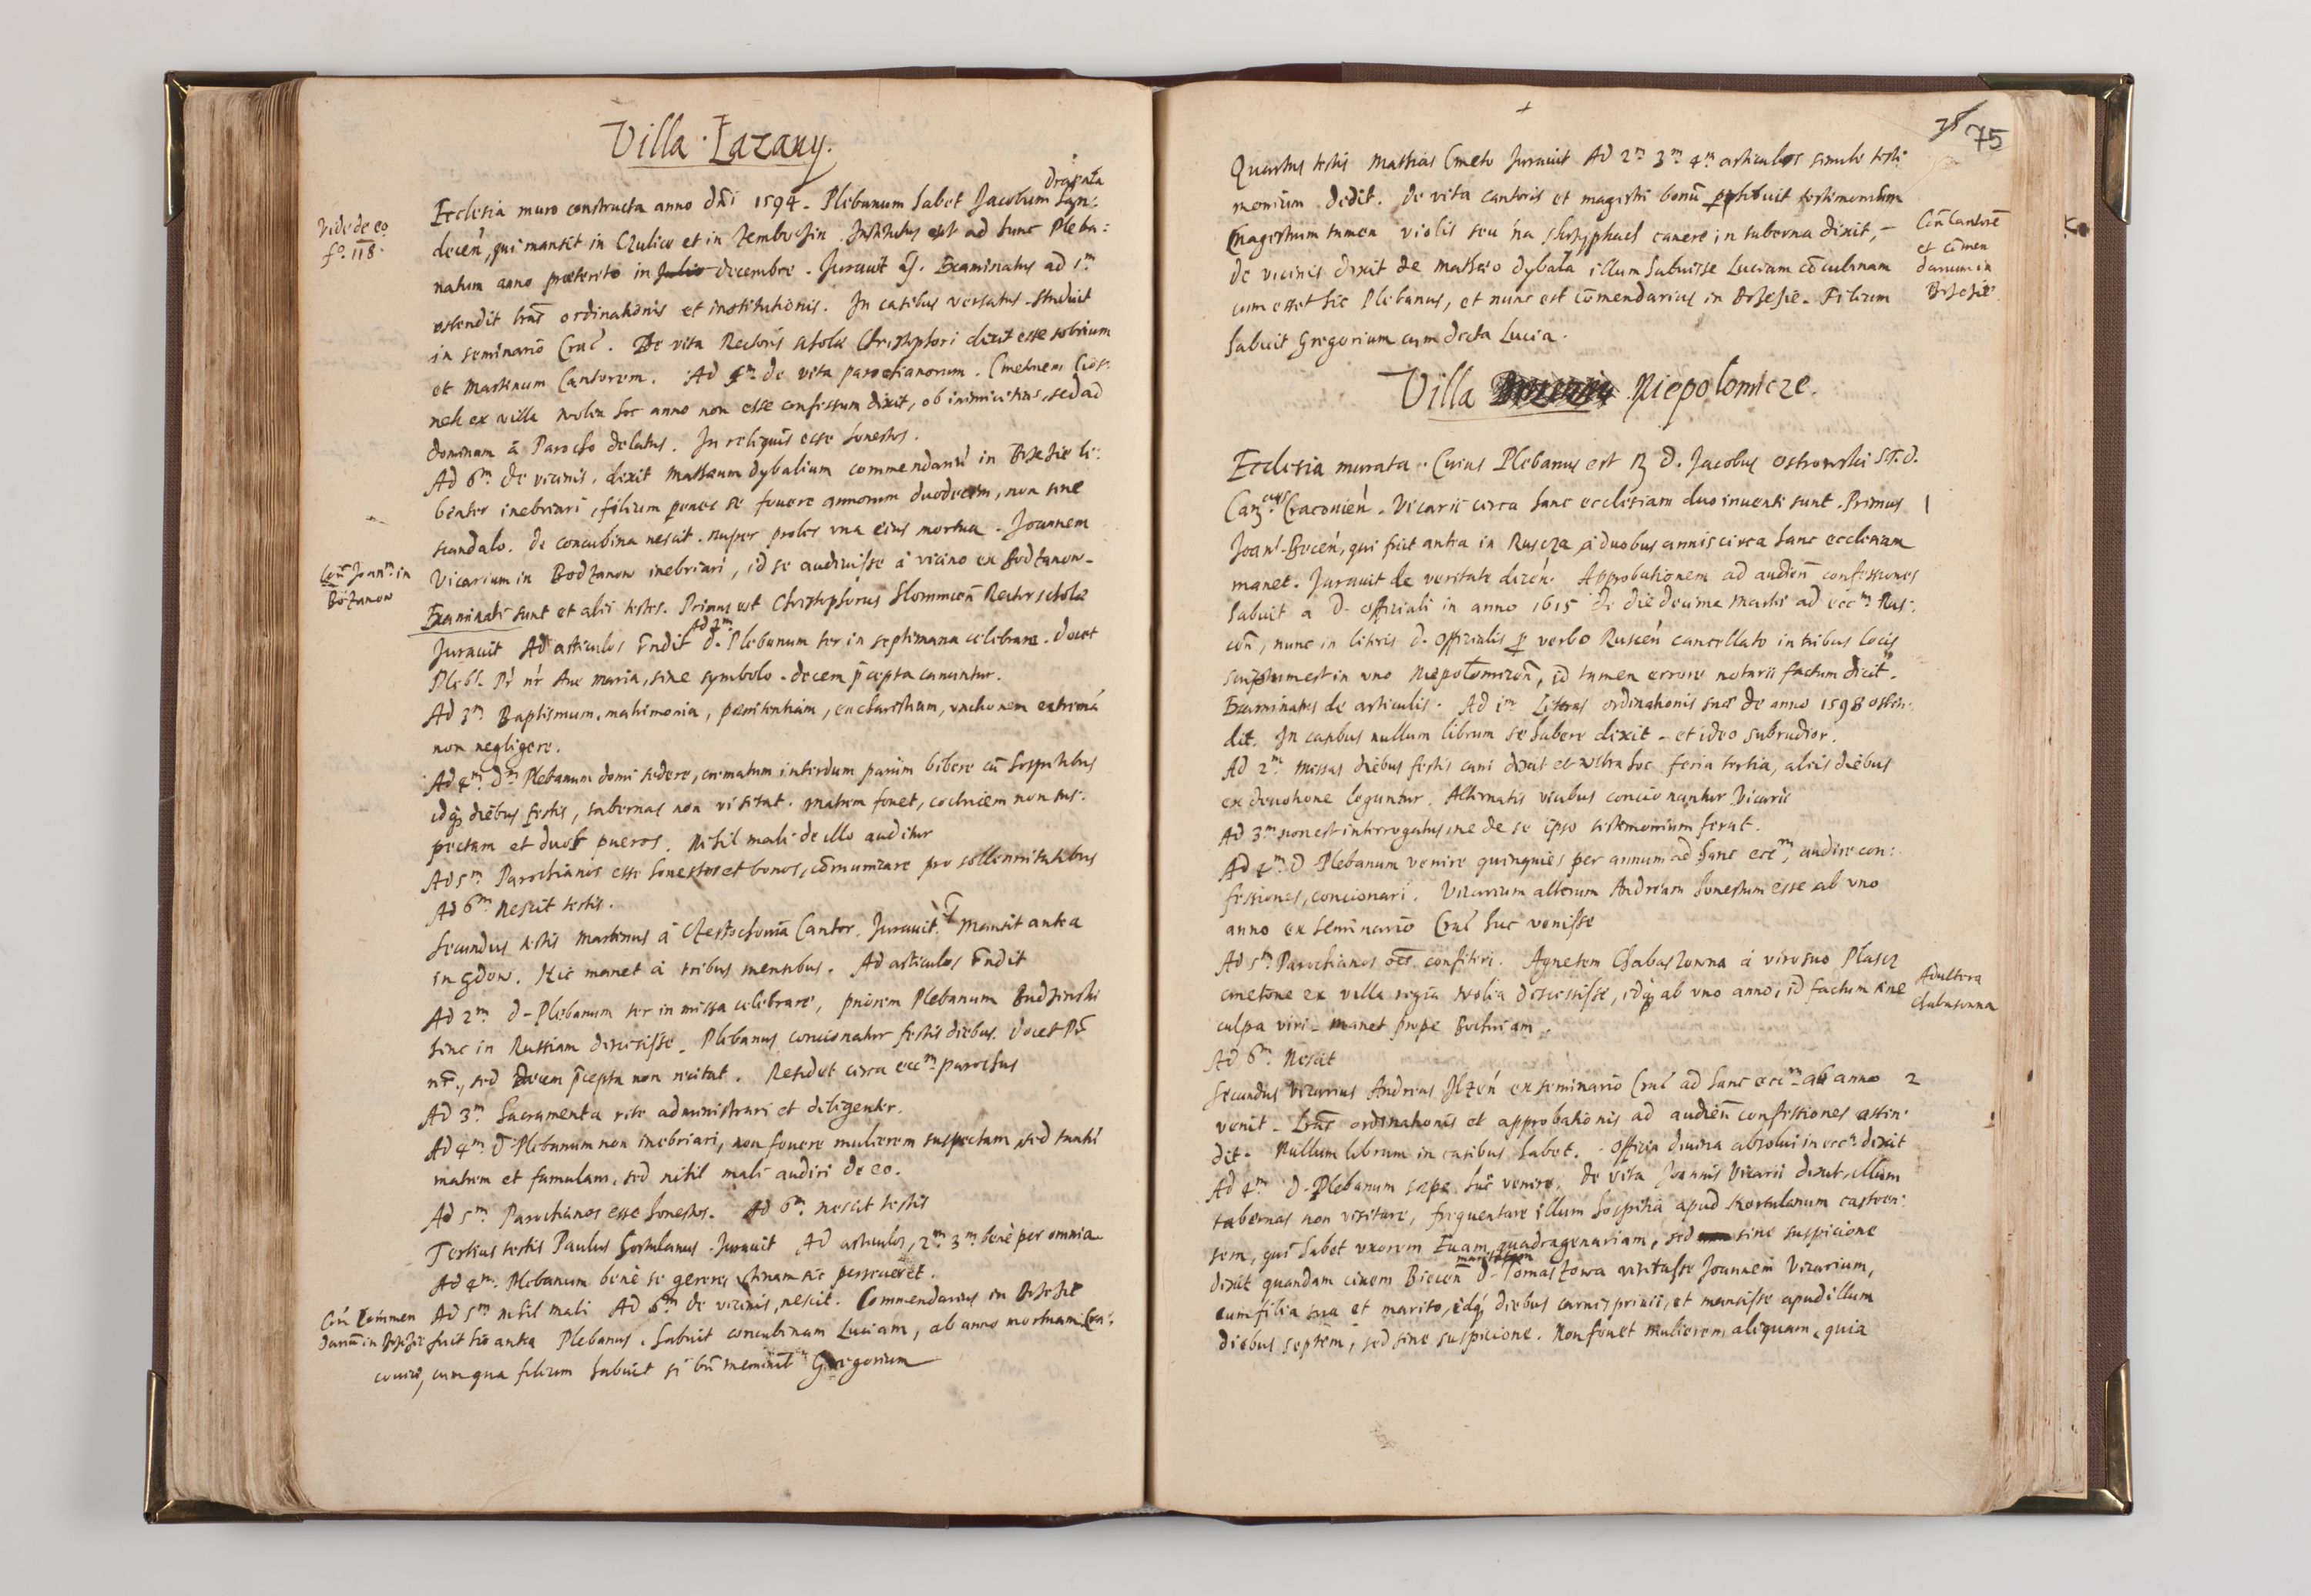 Villa Łazany.
Drapała
Ecclesia muro constructa anno dni 1594. Plebanum habet Jacobum San:
Vide de eo
fo. 118.
decen, qui mansit in Czulice et in Zembocin. Institutus est ad hunc Pleba:
natum anno præterito in Julio decembre. Juravit. Examinatus ad 1m
ostendit lras ordinationis et institutionis. In casibus versatus. studuit
in seminario Crac. De vita Rectoris scholæ Christophori dixit esse sobrium
et Martinum Cantorem. Ad 5m de vita parochianorum. Cmetonem
nek ex villa Wolia hoc anno non esse confessum dixit, ob inimicitias, sed ad
dominum à Parocho delatus. In reliquis esse honestos.
Ad 6m de vicinis, dixit Matheum dybalium commendariu in Brzezie li:
benter inebriari, filium penes se fovere annorum duodecim, non sine
scandalo. De concubina nescit. nuper proles una eius mortua. Joannem
Con Joanem in
Bodzanow
Vicarium in Bodzanow inebriari, id se audivisse à vicino ex Bodzanow.
Examinati sunt et alii testes. Primus est Christophorus Slomnicen Rector scholæ
Juravit Ad articulos rndit Ad 2m D. Plebanum ter in septimana celebrare. Docet
Plebs. Pr nr Ave Maria, sine symbolo. decem pcepta canuntur.
Ad 3m Baptismum, matrimonia, pænitentiam, eucharistiam, unctionem extremá
non negligere.
Ad 4m Dm Plebanum domi sedere, crematum interdum parùm bibere cũ hospitibus
idq diebus festis, tabernas non visitat. matrem fovet, coctricem non sus:
pectam et duos pueros. Nihil mali de illo auditur
Ad 5m Parochianos esse honestos et bonos, cõmunicare pro sollennitatibus
Ad 6m Nescit testis.
Secundus testis Martinus à Czestochowa Cantor. Juravit. Mansit antea
in Gdow. Hic manet à tribus mensibus. Ad articulos rndit
Ad 2m D. Plebanum ter in missa celebrare, priorem Plebanum Budzinski
hinc in Russiam discessisse. Plebanus concionatur festis diebus. Docet Pr
nr., sed decem pcepta non recitat. Residet circa eccm parochus
Ad 3m Sacramenta rite administrari et diligenter.
Ad 4m D Plebanum non inebriari, non fovere mulierem suspectam sed tantú
matrem et famulam, sed nihil mali audiri de eo.
Ad 5m Parochianos esse honestos. Ad 6m nescit testis
Tertius testis Paulus hortulanus. Juravit Ad articulos, 2m 3m benè per omnia
Ad 4m Plebanum benè se gerere, utinam sic perseveret.
Con Commen
dariũ in Brzezie
Ad 5m nihil mali Ad 6m de vicinis, nescit. Commendarius in Brzezie
fuit hic antea Plebanus. habuit concubinam Luciam, ab anno mortuam Cra:
coviæ, cum qua filium habuit si bñ meminit Gregorium
+
75 75
Quartus testis Mathias Cmeto Juravit Ad 2m 3m 4m articulos simile testi
monium dedit. De vita cantoris et magistri bonũ perhibuit testimonium
Magistrum tamen violis seu na skrzypkach canere in taberna dixit,
Con Cantorẽ
et cõmen
darium in
Brzezie
De vicinis dixit de Matheo dybala illum habuisse Luciam cõcubinam
cum esset hic Plebanus, et nunc est cõmendarius in Brzezie. Filium
habuit Gregorium cum dicta Lucia.
Villa Niepolomicze.
Ecclesia murata. Cuius Plebanus est R D. Jacobus Ostrowski S.T.D.
Can.cus Cracovien. Vicarii circa hanc ecclesiam duo inventi sunt. Primus 1
Joan. Becen, qui fuit antea in Ruscza, à duobus annis circa hanc ecclesiam
manet. Juravit de veritate dicen. Approbationem ad audien confessiones
habuit a D. Officiali in anno 1615 de die decima Martii ad eccm Rus:
cen, nunc in literis D. Officialis p verbo Ruscen cancellato in tribus locis
scriptum est in uno Niepolomicen, id tamen errore notarii factum dicit.
Examinatus de articulis. Ad 1m Literas ordinationis suas de anno 1598 osten:
dit. In casibus nullum librum se habere dixit. et ideo subrudior.
Ad 2m Missas diebus festis cani dixit et ultra hoc feria tertia, aliis diebus
ex devotione leguntur. Alternatis vicibus concionantur Vicarii
Ad 3m non est interrogatus, ne de se ipso testimonium ferat.
Ad 4m D Plebanum venire quinquies per annum ad hanc eccm, audire con:
fessiones, concionari. Vicarium alterum Andream honestum esse ab uno
anno ex seminario Crac huc venisse
Ad 5m Parochianos oẽs confiteri. Agnetem Chabaszowna à viro suo Plascz
cmetone ex villa regia Wolia discessisse, idq ab uno anno, id factum sine
Adultera
Chabusowna
culpa viri. manet prope Bochniam.
Ad 6m Nescit
Secundus Vicarius Andreas Ilzen ex seminario Crac ad hanc eccm ab anno 2
venit. Lras ordinationis et approbationis ad audien confessiones osten:
dit. Nullum librum in casibus habet. Officia divina absolvi in ecca dixit
Ad 4m D. Plebanum sæpe huc venire. De vita Joannis Vicarii dixit, illum
tabernas non visitare, frequentare illum hospitia apud Hortulanum castren:
sem, qui habet uxorem Evam quadragenariam, sed sine suspicione
dixit quandam civem Biecen D. Tomaszowa visitasse Joannem Vicarium,
cum filia sua et marito, idq diebus carnisprivii, et mansisse apud illum
diebus septem, sed sine suspicione. Non fovet mulierem aliquam, quia